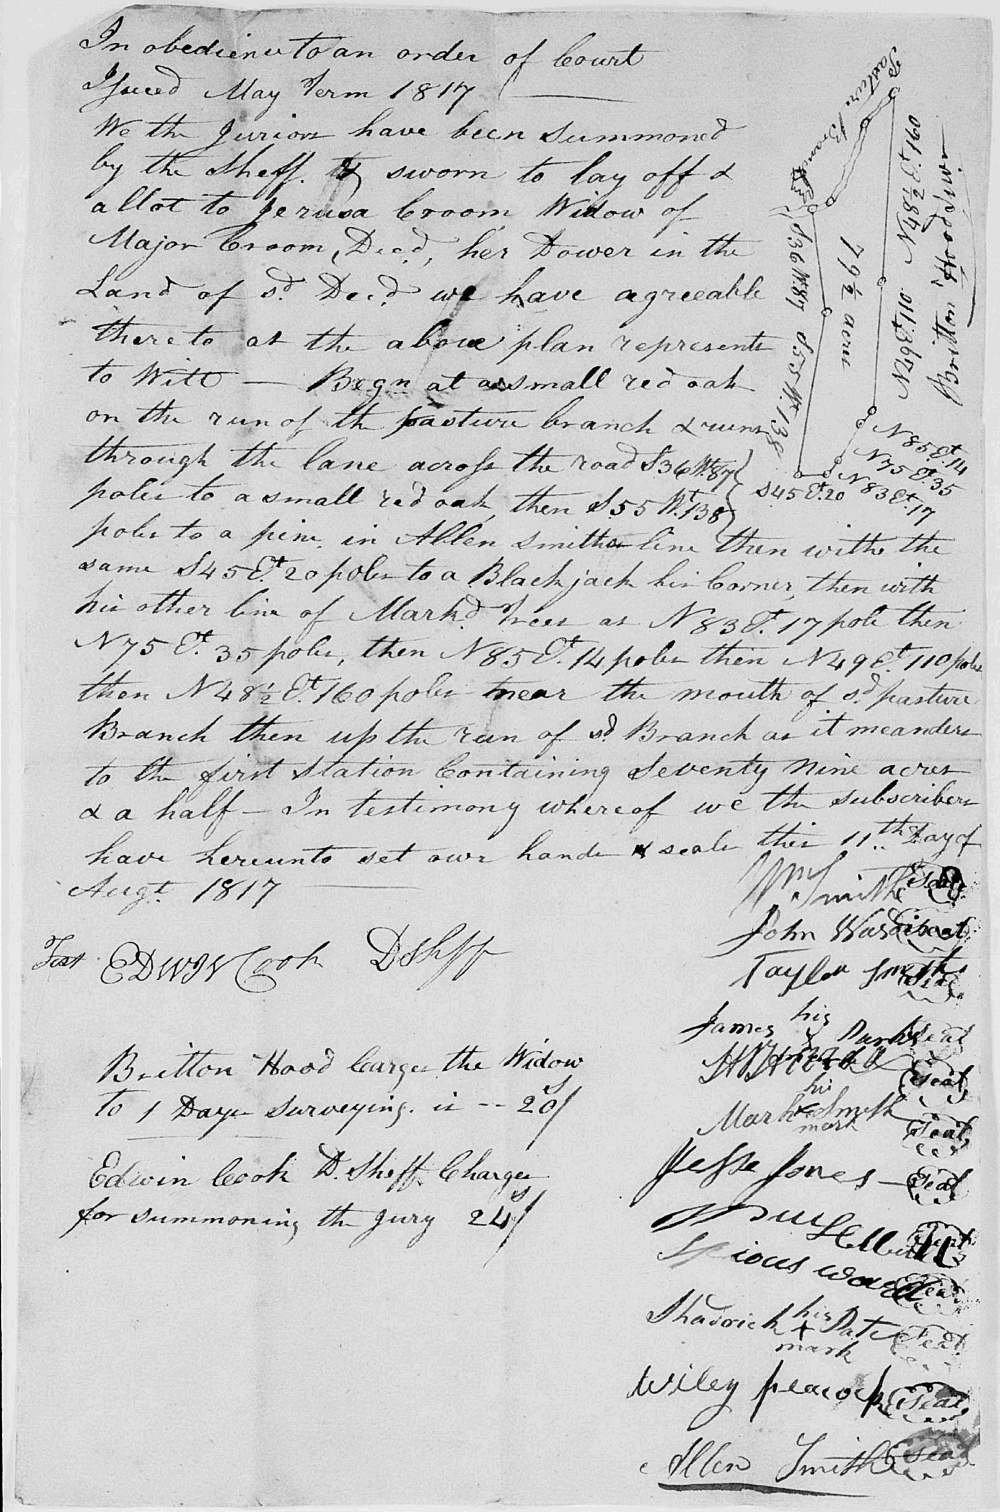 In obedience to an order of Court
Issued May Term 1817
We the Juriors have been summoned
by the Sheff. & sworn to lay off &
allot to Jerusa Croom Widow of
Major Croom, Decd, her Dower in the
Land of sd. Decd. we have agreeable
thereto as the above plan represents
to Witt — Begn at a small red oak
on the run of the pasture branch & runs
through the lane across the road S36Wt.87
poles to a small red oak, then S.55 Wt.138
poles to a pine in Allen Smiths line then withe the
same S45Et. 20 poles to a Blackjack his Corner, then with
his other line of Markd Trees as N83Et.17 pole then
N75 Et. 35 poles, then N85Et.14 poles then N49Et.110 poles
then N48½Et.160 poles near the mouth of sd. pasture
Branch then up the run of sd Branch as it meanders
to the first station Containing Seventy Nine acres
& a half — In testimony whereof we the subscribers
have hereunto set our hands & seals this 11th day of
Augt. 1817
Pasture Branch
S36Wt87
S55Wt.138
79½ acres
N49Et.110
N48½Et.160
Britton Hood Sivor
N85Et.14
N75 Et.35
N83Et.17
S45Et.20
Wm Smith Seal
John Seal
Taylor Smith Seal
James his Parks Seal
Seal
Mark his Smith Seal
mark
Jesse Jones — Seal
Seal
ward Seal
Shadrick his + Pate Seal
mark
Wiley peacock Seal
Allen Smith Seal
Test EDWIN Cook DShff
Britton Hood Carges the Widow
to 1 Days surveying is -- 20s/
Edwin Cook D. Sheff Charges
for summoning the jury 24s/